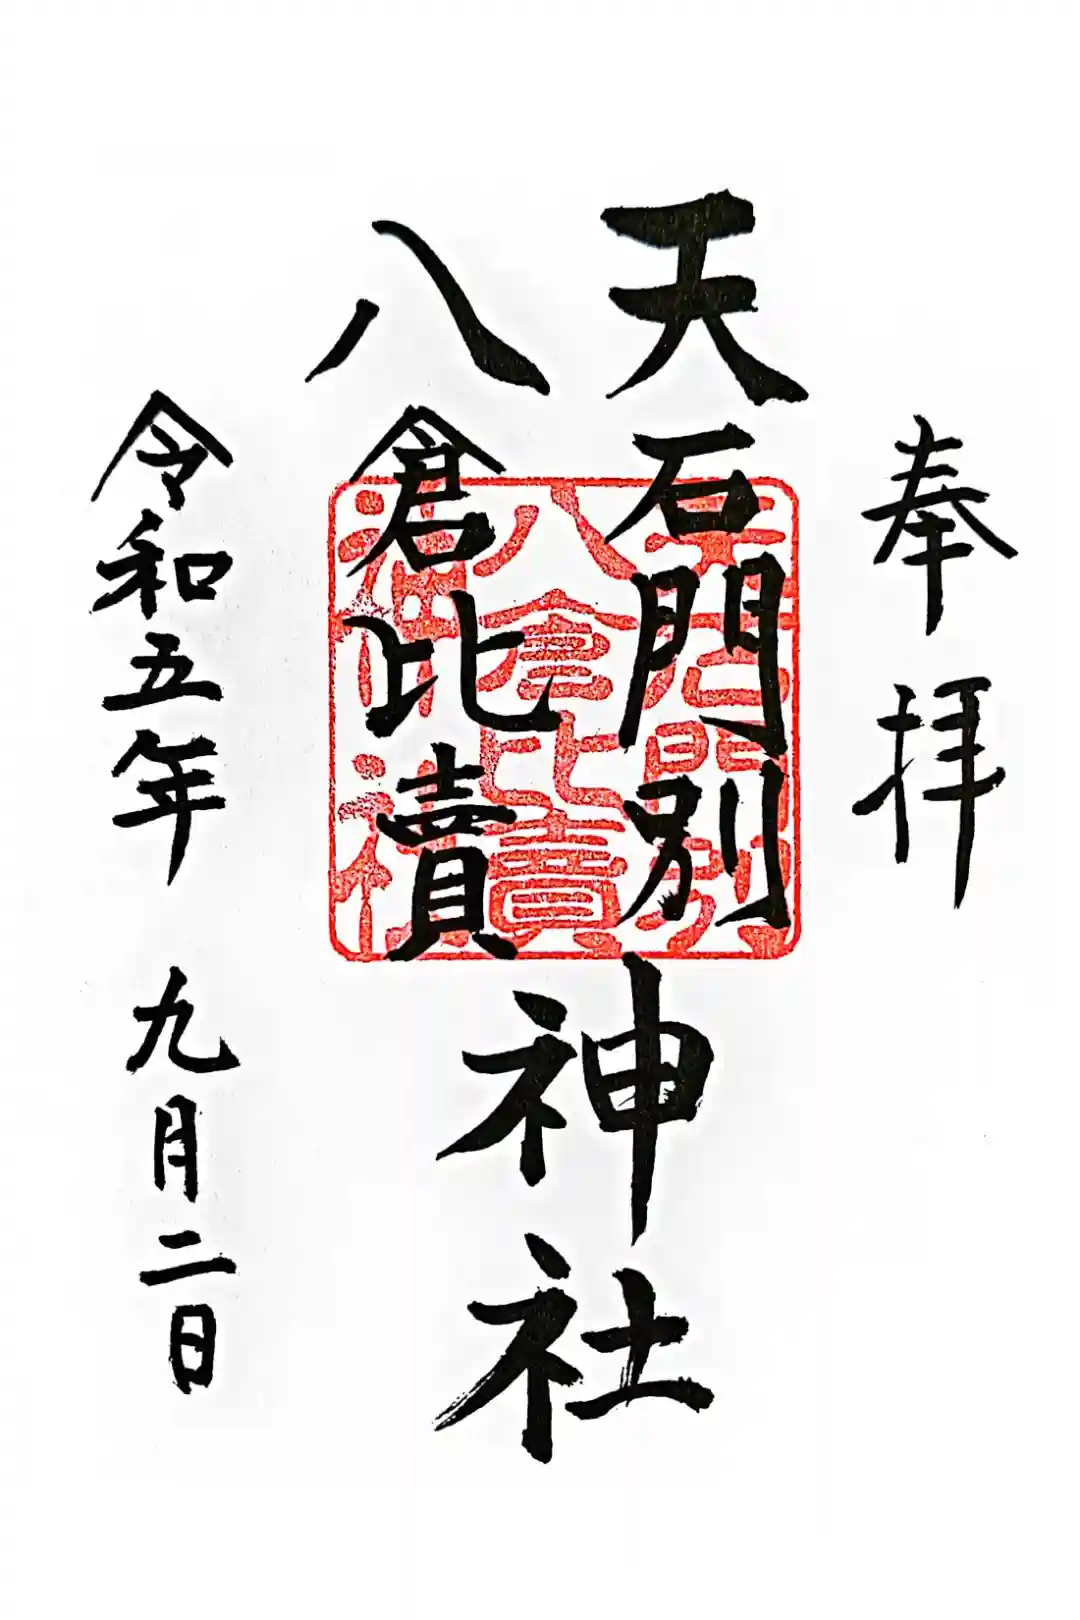 奉拝
天石門別
八倉比賣
神社
令和五年 九月二日
天石門別
八倉比賣
神社